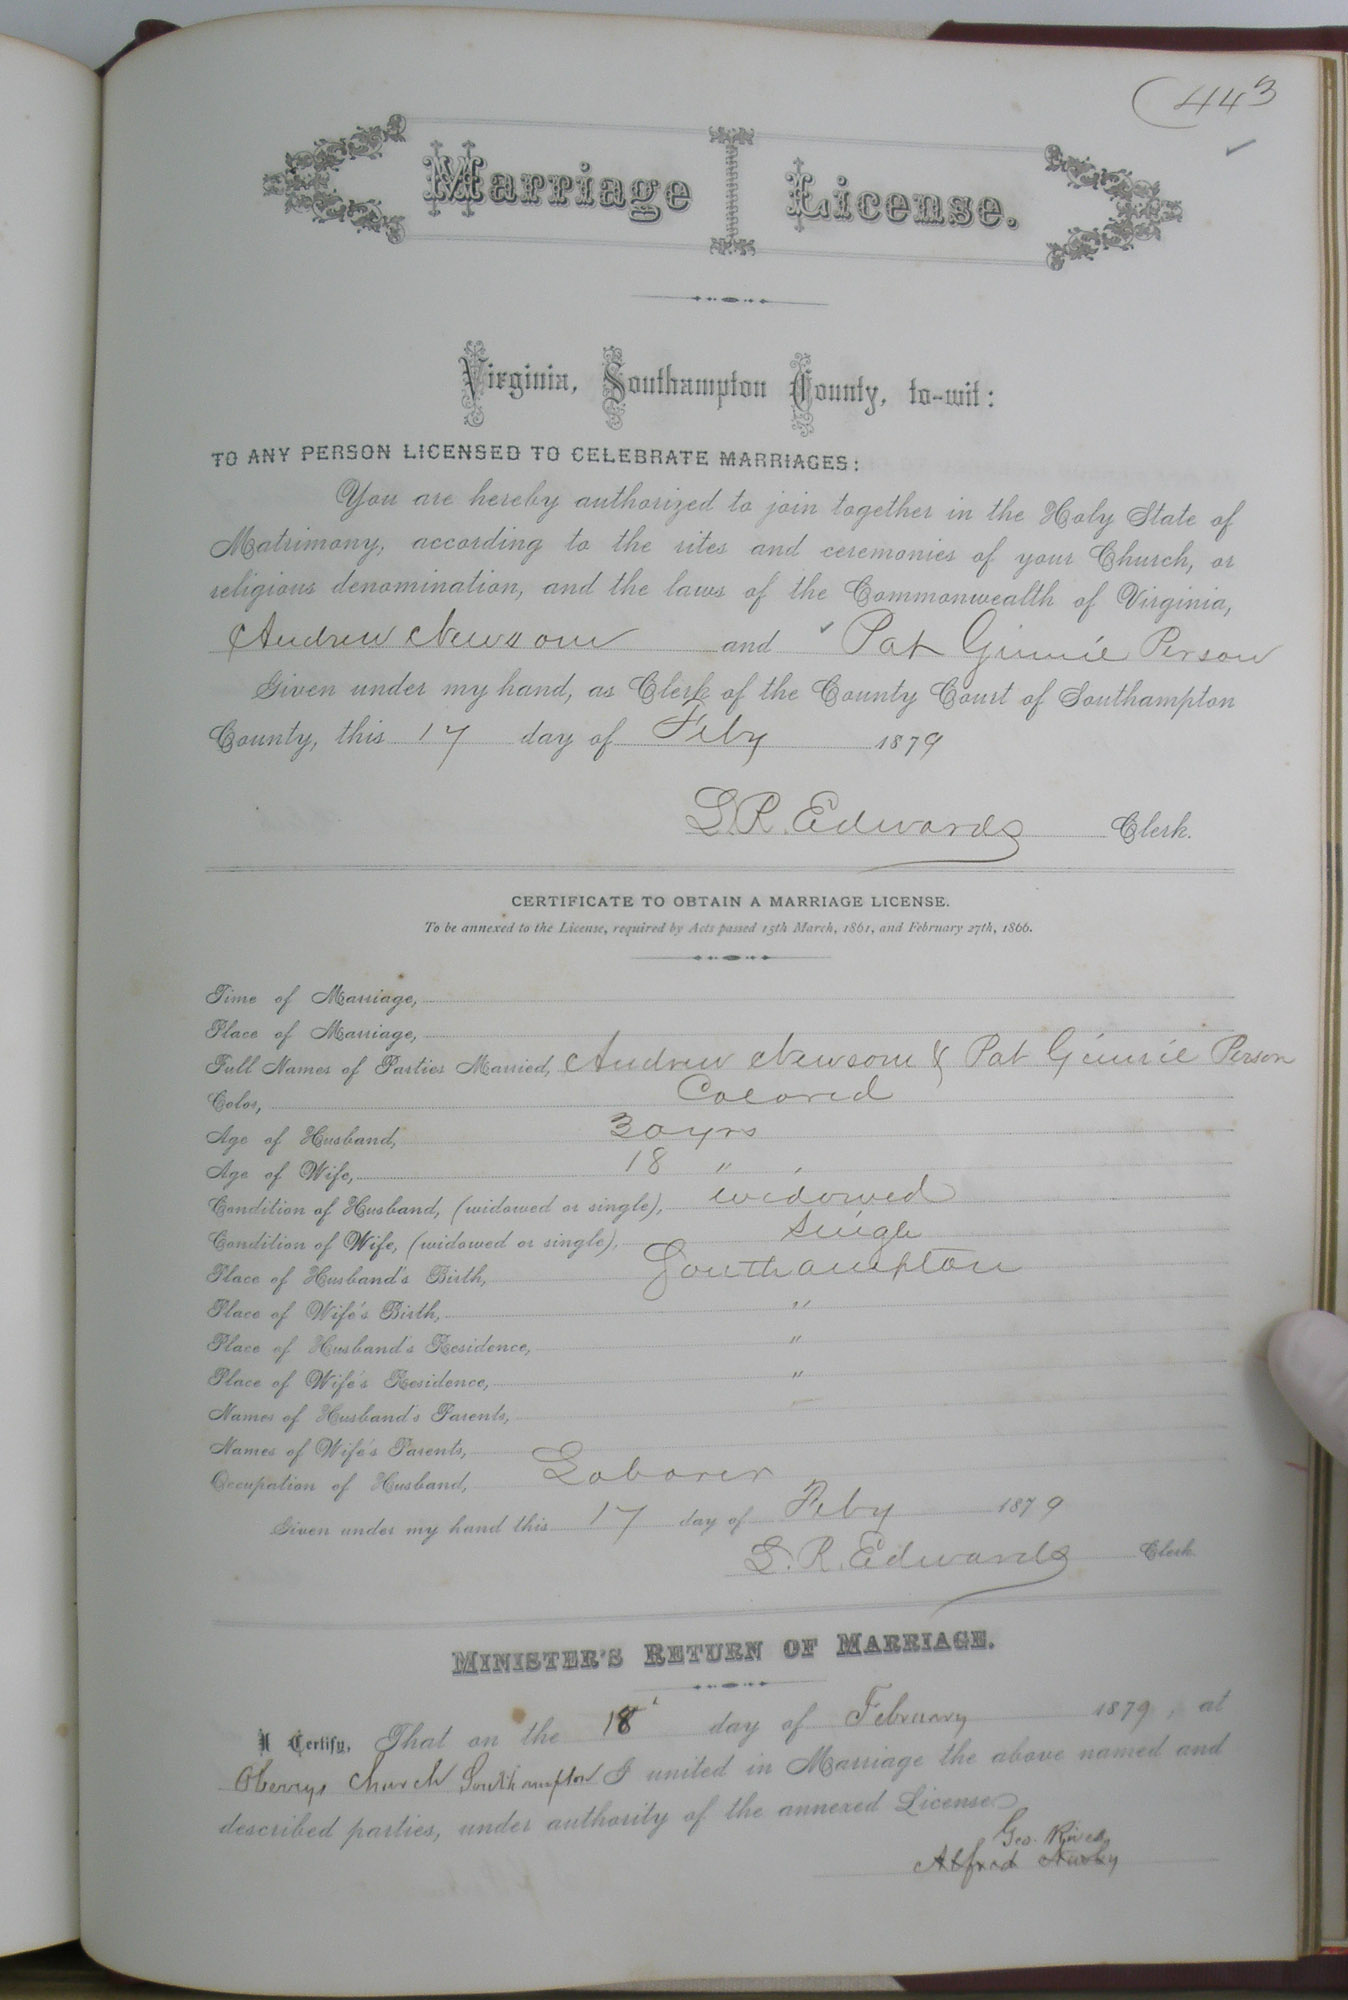 443
Marriage License.
Virginia, Southampton County, to-wit:
TO ANY PERSON LICENSED TO CELEBRATE MARRIAGES:
You are hereby authorized to join together in the Holy State of
Matrimony, according to the rites and ceremonies of your Church, or
religious denomination, and the laws of the Commonwealth of Virginia,
Andrew Newsom and Pat Ginnie Person
Given under my hand, as Clerk of the County Court of Southampton
County, this 17 day of Feby 1879
L. R. Edwards Clerk.
CERTIFICATE TO OBTAIN A MARRIAGE LICENSE.
To be annexed to the License, required by Acts passed 15th March, 1861, and February 27th, 1866.
Time of Marriage,
Place of Marriage,
Full Names of Parties Married, Andrew Newsom & Pat Ginnie Person
Color, Colored
Age of Husband, 30 yrs
Age of Wife, 18 "
Condition of Husband, (widowed or single), widowed
Condition of Wife, (widowed or single), Single
Place of Husband's Birth, Southampton
Place of Wife's Birth, "
Place of Husband's Residence, "
Place of Wife's Residence, "
Names of Husband's Parents,
Names of Wife's Parents,
Occupation of Husband, Laborer
Given under my hand this 17 day of Feby 1879
L. R. Edwards Clerk.
MINISTER'S RETURN OF MARRIAGE.
I Certify, That on the 18 day of February 1879, at
Church Southampton I united in Marriage the above named and
described parties, under authority of the annexed License
Geo. Rives
Alfred